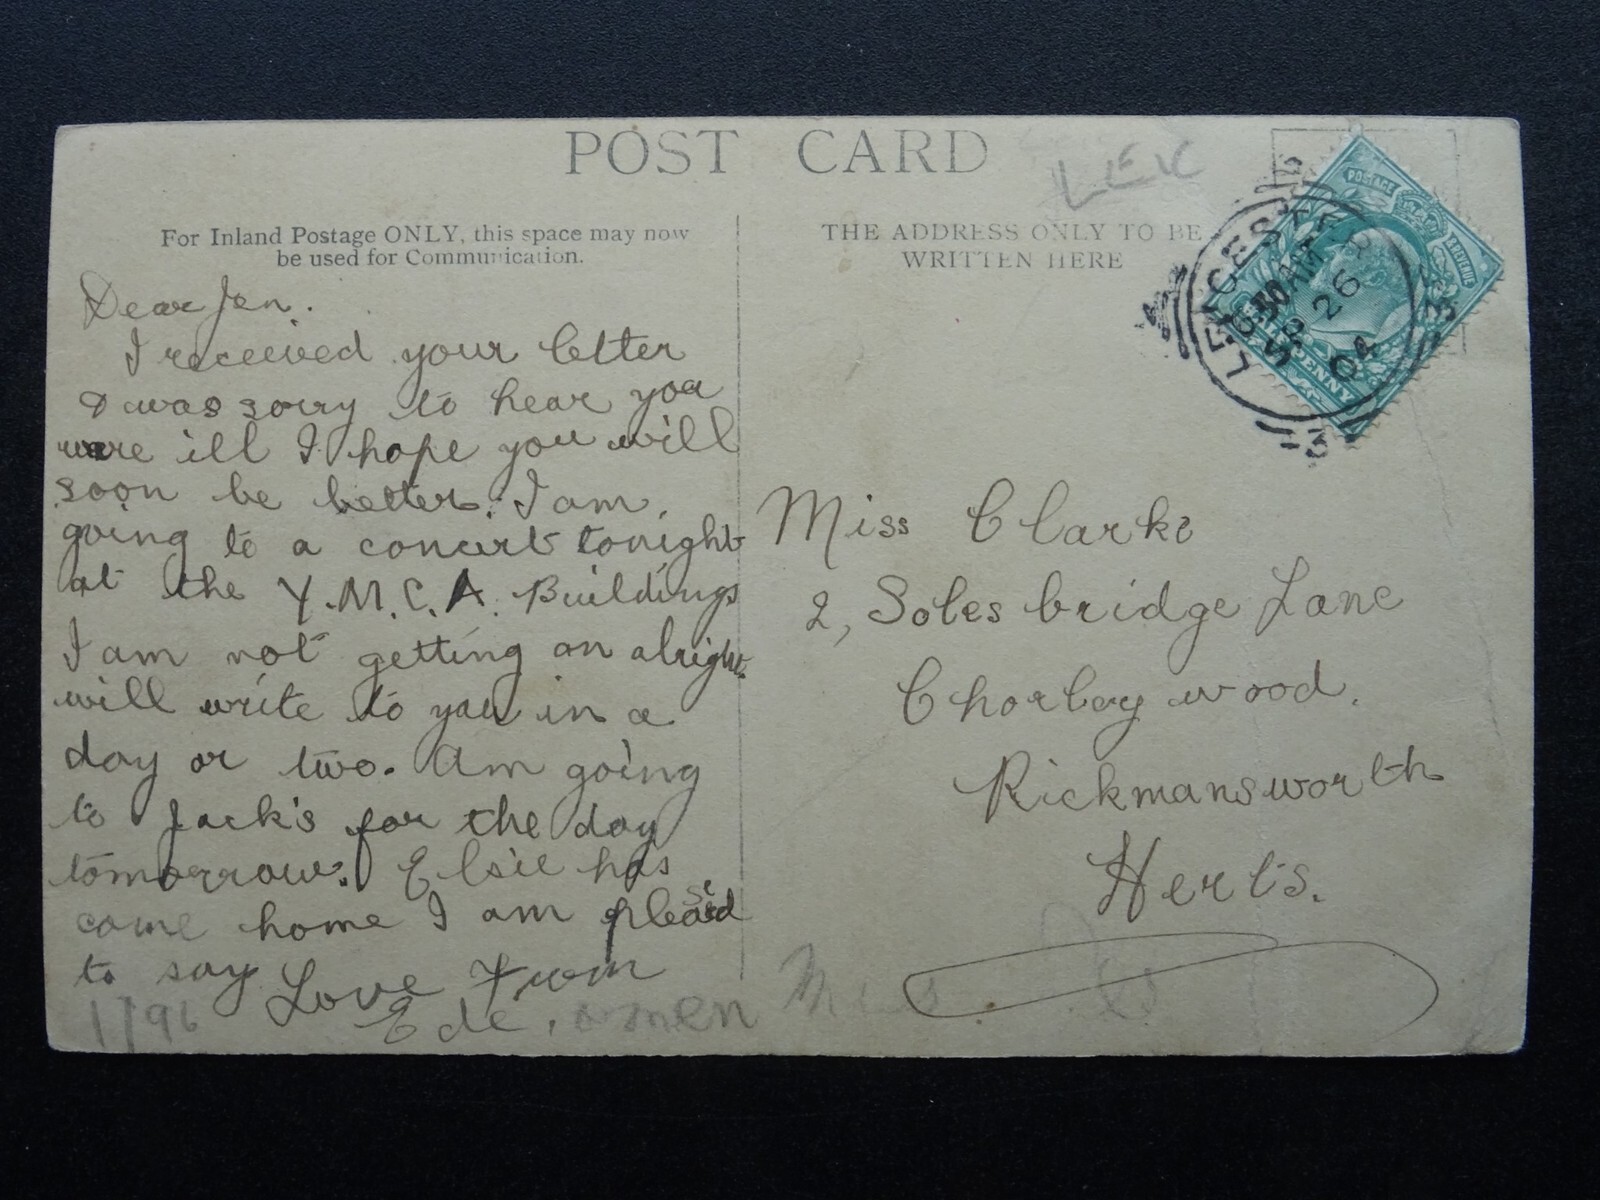 POST CARD
LEK
For Inland Postage ONLY, this space may now
be used for Communication.
THE ADDRESS ONLY TO BE
WRITTEN HERE
POSTAGE
REVENUE
PENNY
LEICESTER
6 30 AM
SP 26
04
3
3
Dear Jen.
I received your letter
& was sorry to hear you
were ill I hope you will
soon be better. I am
going to a concert tonight
at the Y.M.C.A. Buildings
I am not getting on alright
will write to you in a
day or two. Am going
to Jack's for the day
tomorrow. Elsie has
come home I am pleased
to say Love From
Ede.
Miss Clarke
2, Solesbridge Lane
Chorleywood.
Rickmansworth
Herts.
1/96